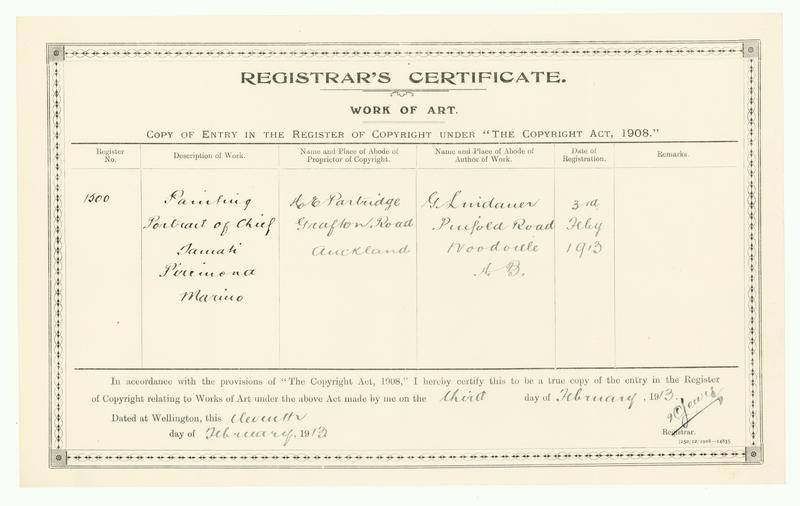 REGISTRAR'S CERTIFICATE.
WORK OF ART.
COPY OF ENTRY IN THE REGISTER OF COPYRIGHT UNDER "THE COPYRIGHT ACT, 1908."
Register No.
Description of Work.
Name and Place of Abode of Proprietor of Copyright.
Name and Place of Abode of Author of Work.
Date of Registration.
Remarks.
1500 Painting H E Partridge G. Lindauer 3rd
Portrait of Chief Grafton Road Pinfold Road Feby
Tamati Auckland Woodville 1913
Piremona H B.
Marino
In accordance with the provisions of "The Copyright Act, 1908," I hereby certify this to be a true copy of the entry in the Register
of Copyright relating to Works of Art under the above Act made by me on the third day of February, 1913.
Dated at Wellington, this eleventh
day of February, 1913
Lewis
Registrar.
[250/12/1908—14635